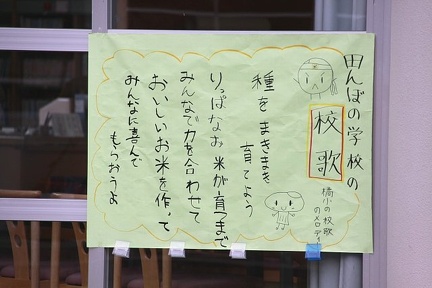 田んぼの学校の
校歌
橘小の校歌
のメロディ
種をまきまき
育てよう
りっぱなお米が育つまで
みんなで力を合わせて
おいしいお米を作って
みんなに喜んで
もらおうよ